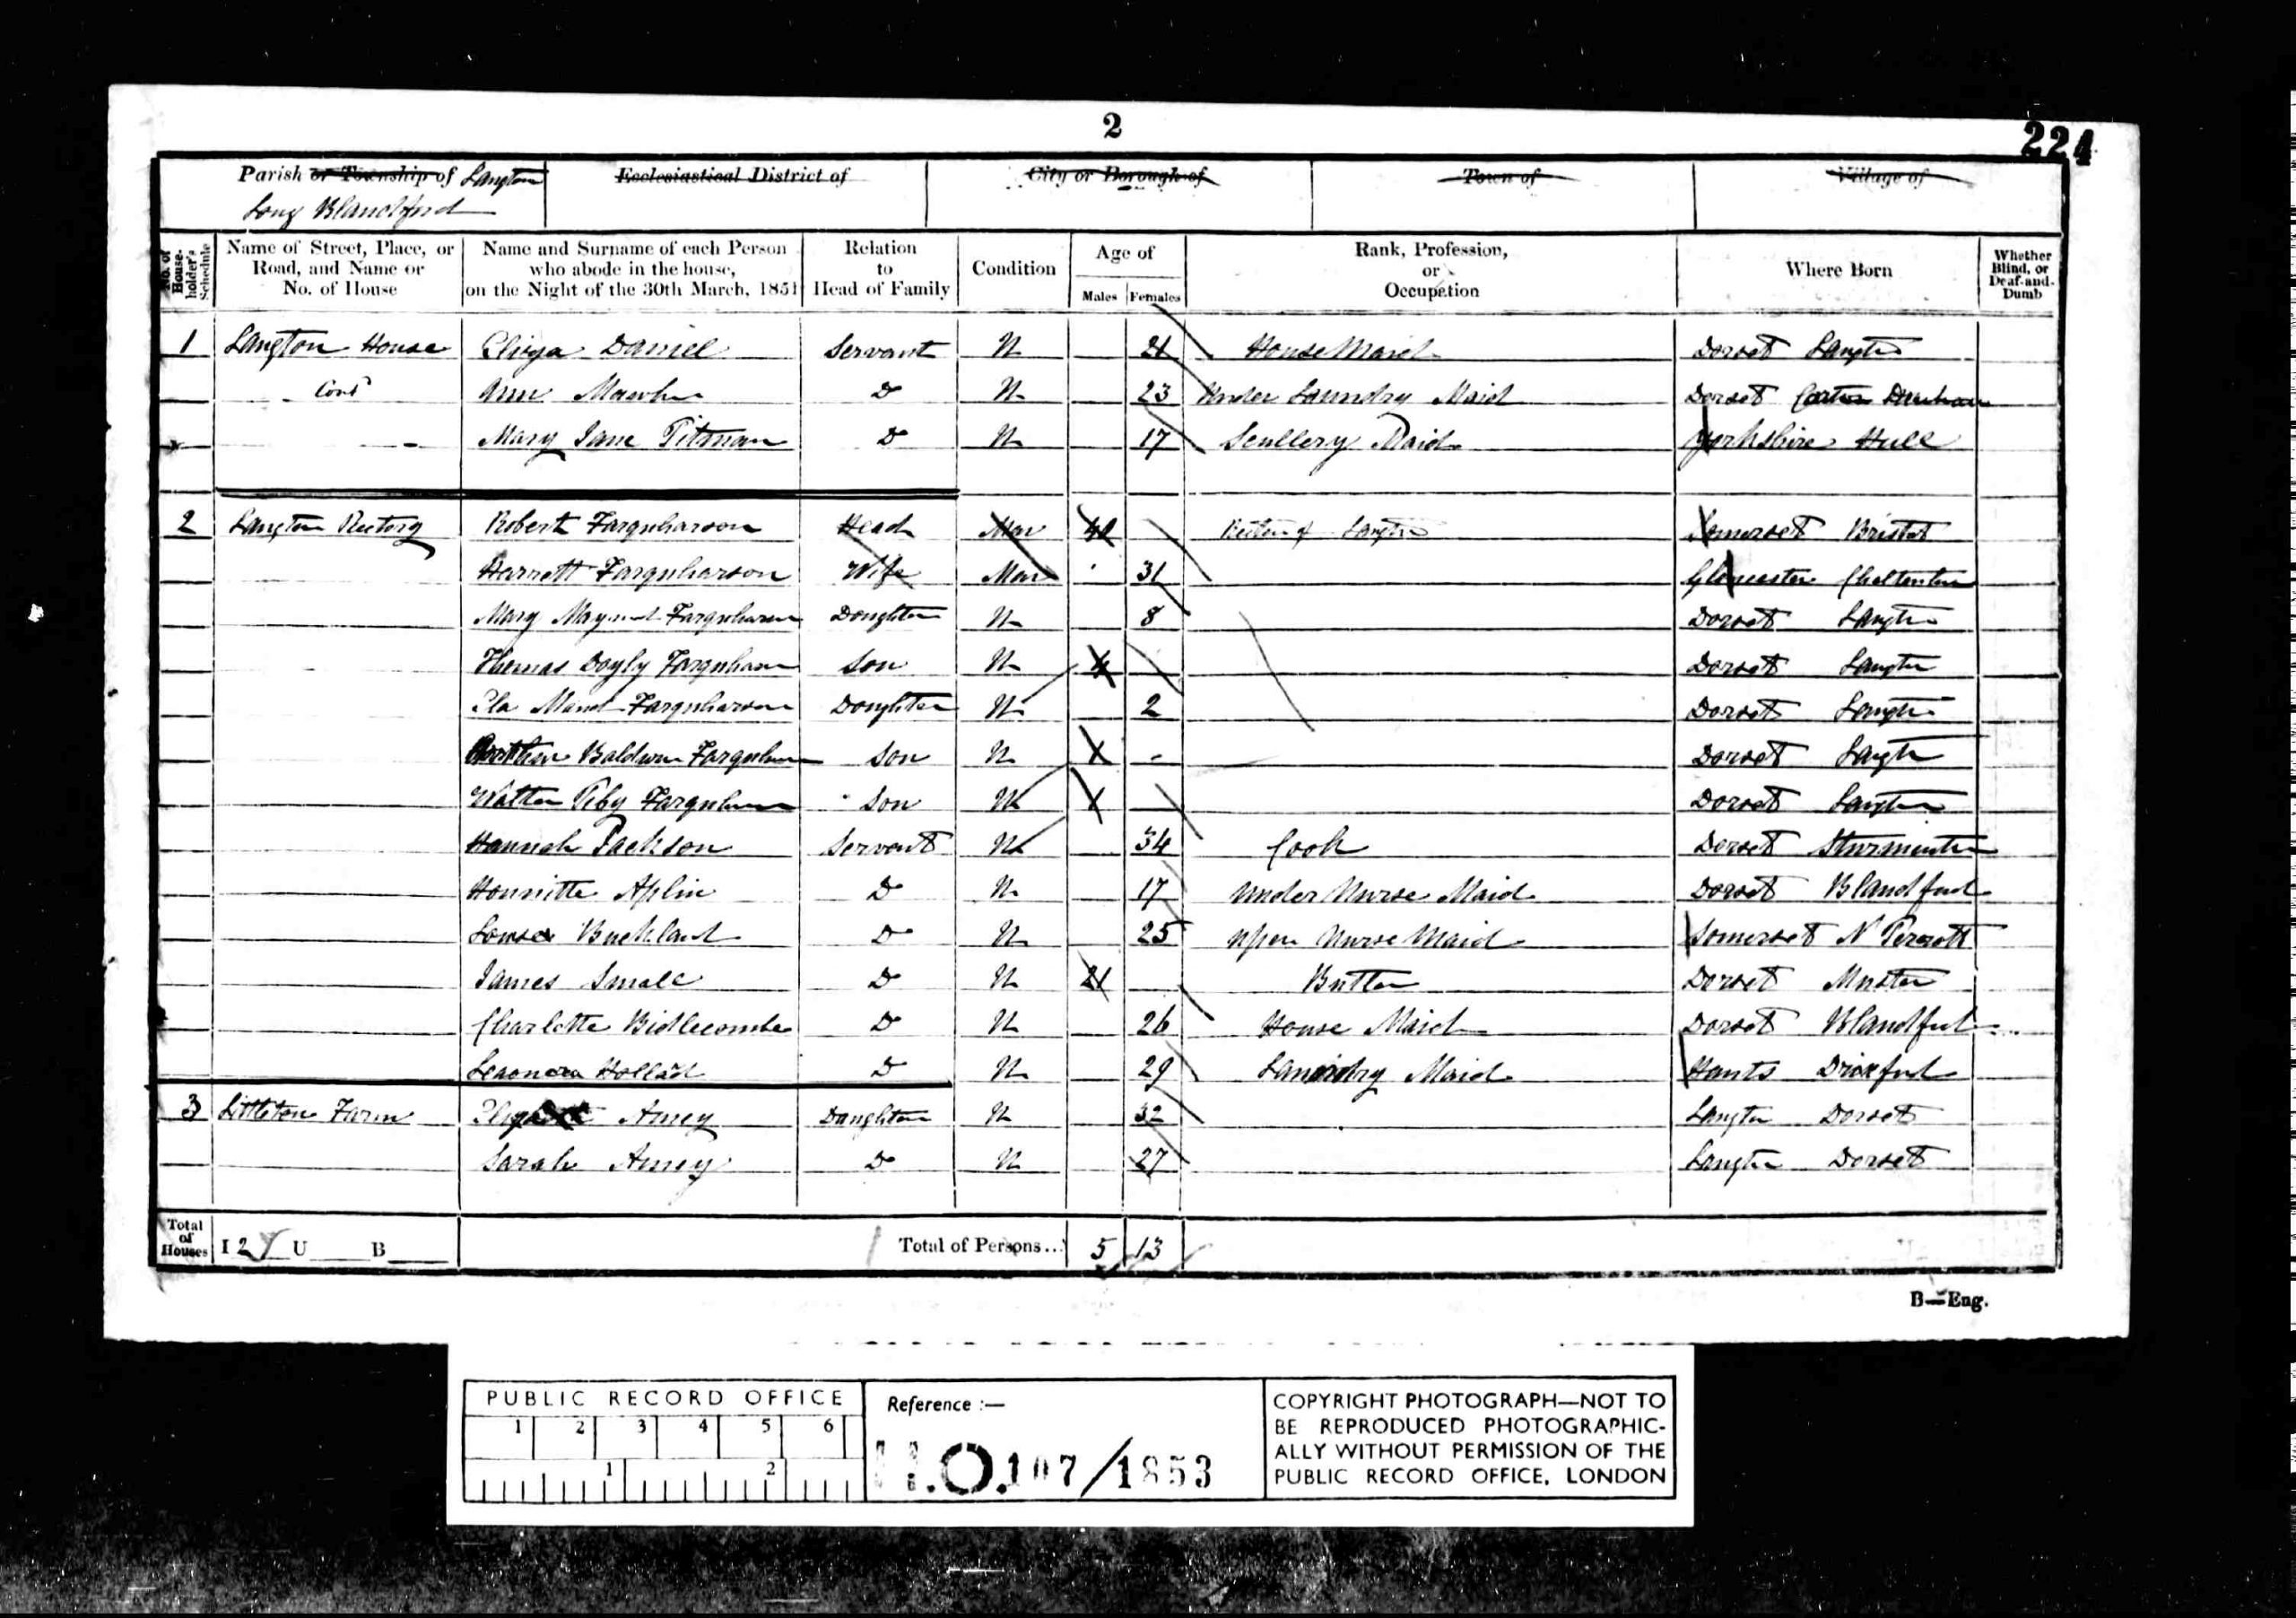 2
224
Parish or Township of Langton
Long Blandford
Ecclesiastical District of
City or Borough of
Town of
Village of
No. of House-holder's Schedule
Name of Street, Place, or Road, and Name or No. of House
Name and Surname of each Person who abode in the house, on the Night of the 30th March, 1851
Relation to Head of Family
Condition
Age of
Males Females
Rank, Profession, or Occupation
Where Born
Whether Blind, or Deaf-and-Dumb
1 Langton House Eliza Daniel Servant U 21 House Maid Dorset Langton
Cont Ann D U 23 Under Laundry Maid Dorset
Mary Jane Pitman D U 17 Scullery Maid Yorkshire Hull
2 Langton Rectory Robert Farquharson Head Mar Rector of Langton Somerset Bristol
Harriett Farquharson Wife Mar 31 Glocester Cheltenham
Mary Farquharson Daughter U 8 Dorset Langton
Thomas Doyly Farquharson Son U 4 Dorset Langton
Ela Maud Farquharson Daughter U 2 Dorset Langton
Baldwin Farquharson Son U - Dorset Langton
Walter Farquharson Son U Dorset Langton
Hannah Jackson Servant U 34 Cook Dorset Sturminster
Henriette Aplin D U 17 Under Nurse Maid Dorset Blandford
Louisa Buckland D U 25 Upper Nurse Maid Somerset N Perrott
James Small D U 21 Butler Dorset
Charlotte Bidlecombe D U 26 House Maid Dorset Blandford
Leonora Holland D U 29 Laundry Maid Hants
3 Littleton Farm Amey Daughter U 32 Langton Dorset
Sarah Amey D U 27 Langton Dorset
Total of Houses I 2 U B Total of Persons... 5 13
B—Eng.
PUBLIC RECORD OFFICE
1 2 3 4 5 6
1 2
Reference :—
H.O. 107/1853
COPYRIGHT PHOTOGRAPH—NOT TO
BE REPRODUCED PHOTOGRAPHIC-
ALLY WITHOUT PERMISSION OF THE
PUBLIC RECORD OFFICE, LONDON